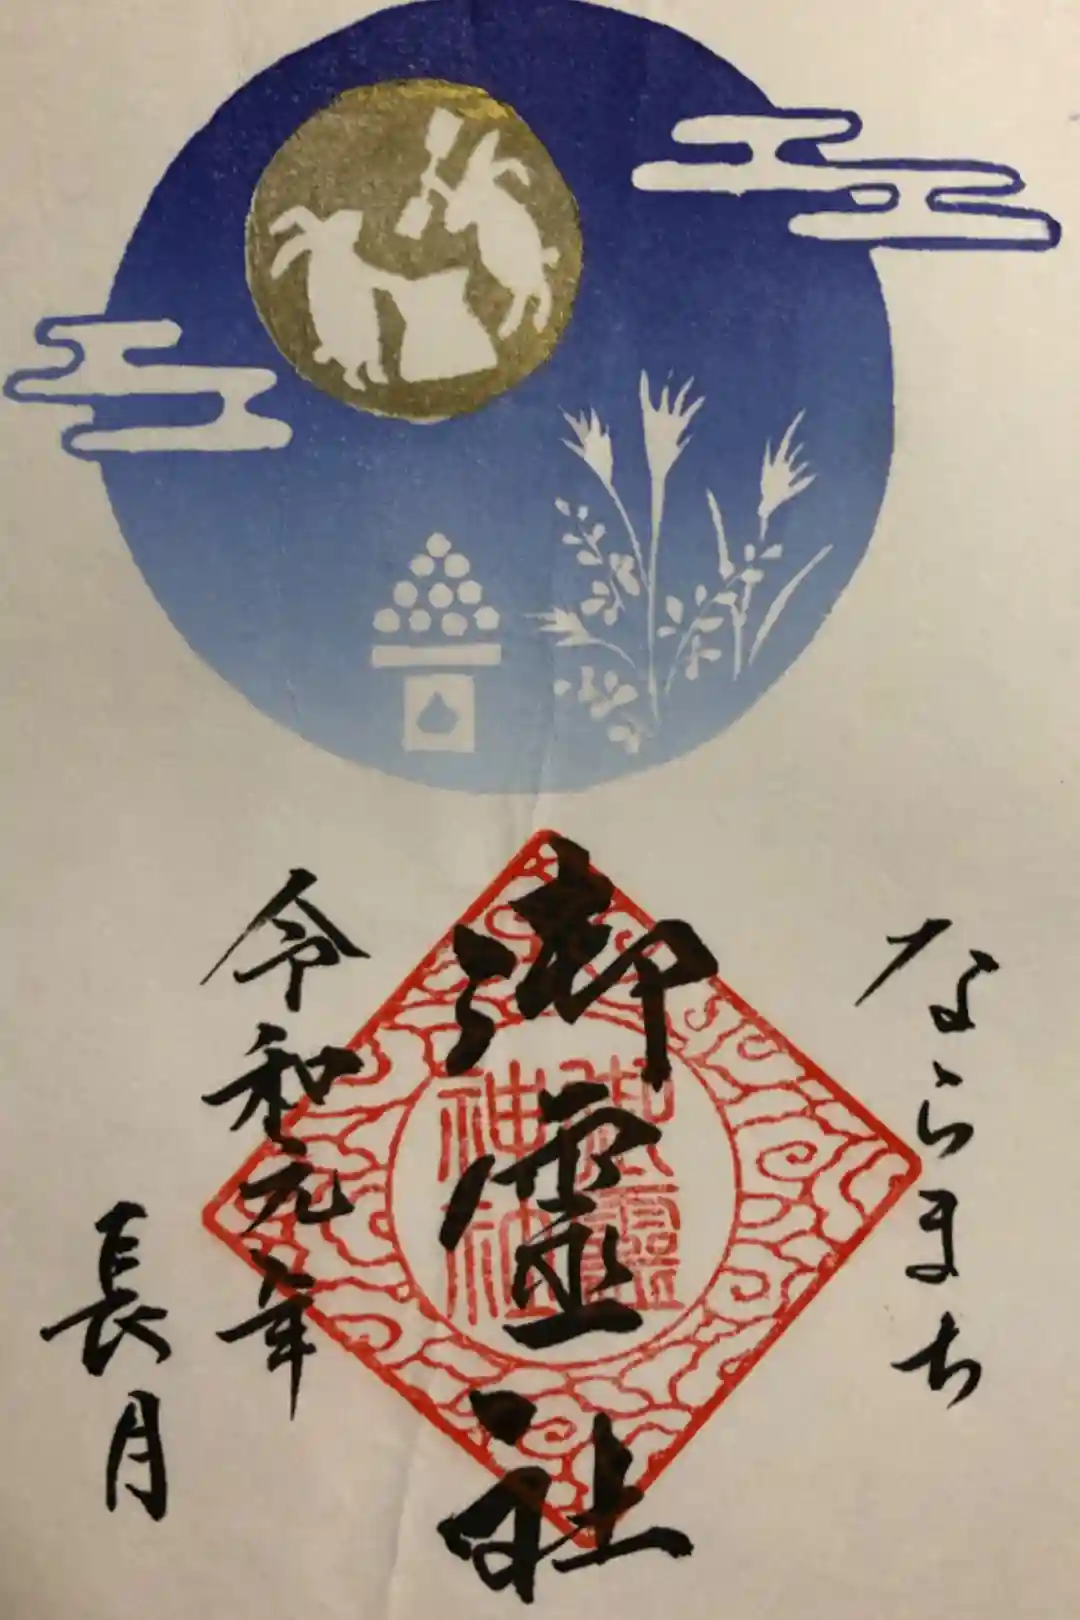 ならまち
御霊社
御霊神社
令和元年
長月